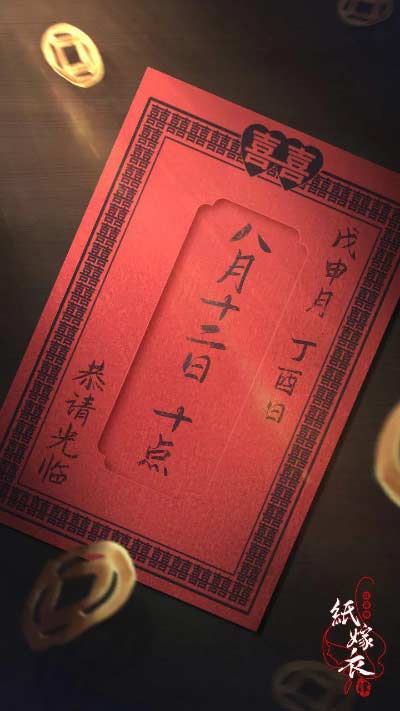 囍
戊申月 丁酉日
八月十二日 十点
恭请光临
紙嫁衣